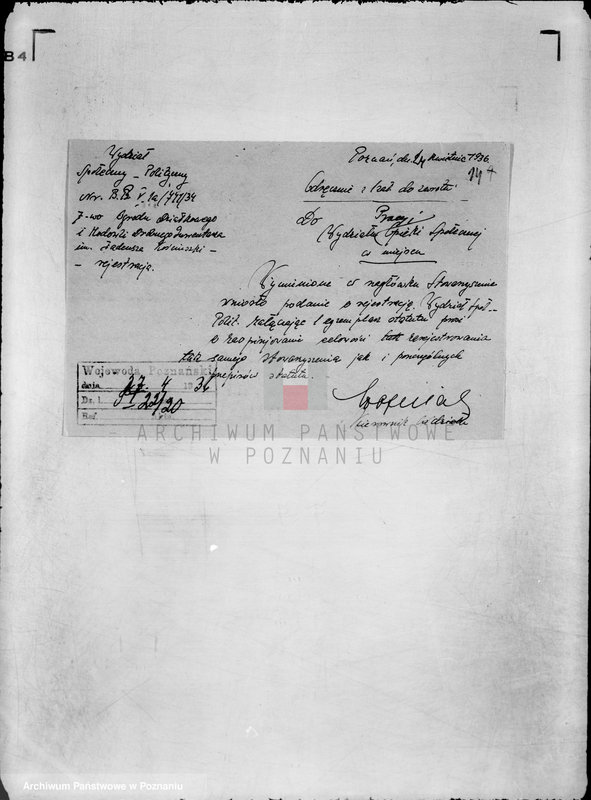 B4
Wydział
Społeczny - Polityczny
Nr. B.B. V. 1a/777/34
T-wo Ogrodu Działkowego
i Hodowli Drobnego Inwentarza
im. Tadeusza Kościuszki -
- rejestracja.
Poznań dn. kwietnia 193
Odręcznie i t do zwrotu.
Do
Pracy i
Wydziału Opieki Społecznej
w miejscu
Wymienione w nagłówku Stowarzyszenie
wniosło podanie o rejestrację. Wydział Społ.-
Polit. załączając 1 egzemplarz statutu prosi
o zaopinjowanie celowości tak zarejestrowania
samego Stowarzyszenia jak i poszczególnych
przepisów statutu.
Wojewoda Poznański
dnia 27. 4 1934
Dz. l.
Ref.
Kierownik Oddziału
ARCHIWUM PAŃSTWOWE
W POZNANIU
Archiwum Państwowe w Poznaniu